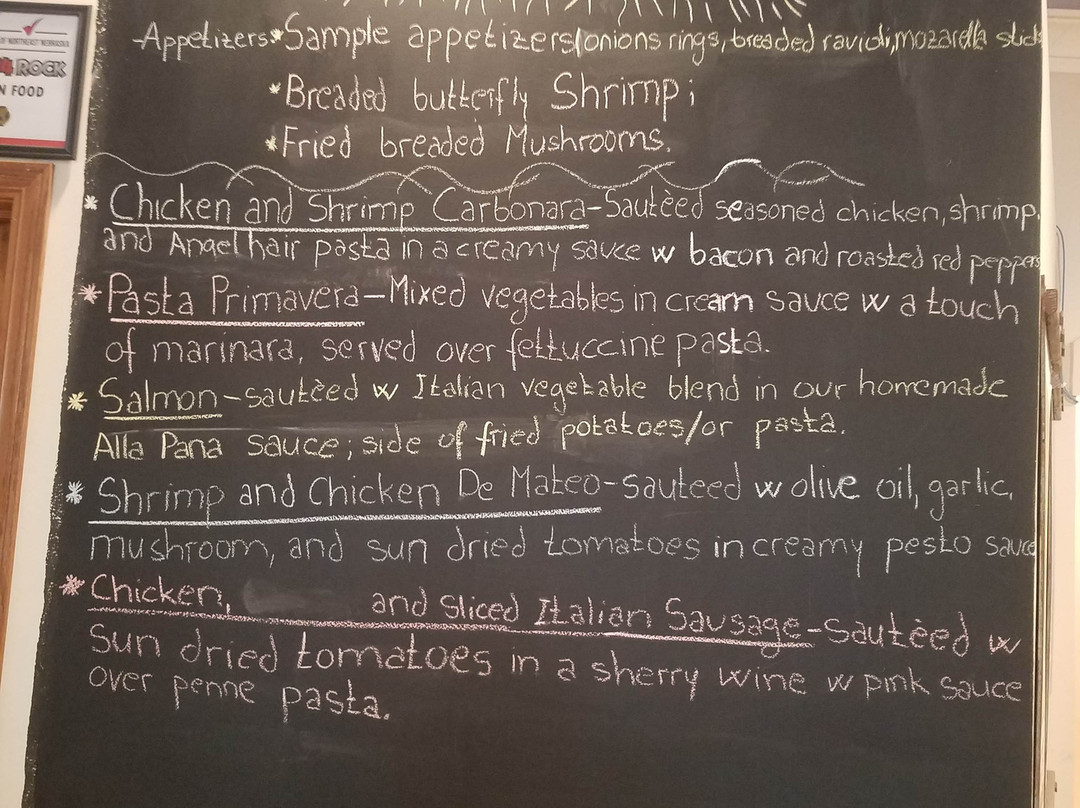 OF NORTHEAST NEBRASKA
ROCK
N FOOD
-Appetizers:*Sample appetizers(onions rings, breaded ravioli, mozarella sticks
*Breaded butterfly Shrimp;
*Fried breaded Mushrooms.
* Chicken and Shrimp Carbonara-Sautèed seasoned chicken, shrimp,
and Angel hair pasta in a creamy sauce w bacon and roasted red peppers
* Pasta Primavera-Mixed vegetables in cream sauce w a touch
of marinara, served over fettuccine pasta.
* Salmon-sautèed w Italian vegetable blend in our homemade
Alla Pana sauce; side of fried potatoes/or pasta.
* Shrimp and Chicken De Mateo-sauteed w olive oil, garlic,
mushroom, and sun dried tomatoes in creamy pesto sauce
* Chicken, and Sliced Italian Sausage-Sautèed w
sun dried tomatoes in a sherry wine w pink sauce
over penne pasta.